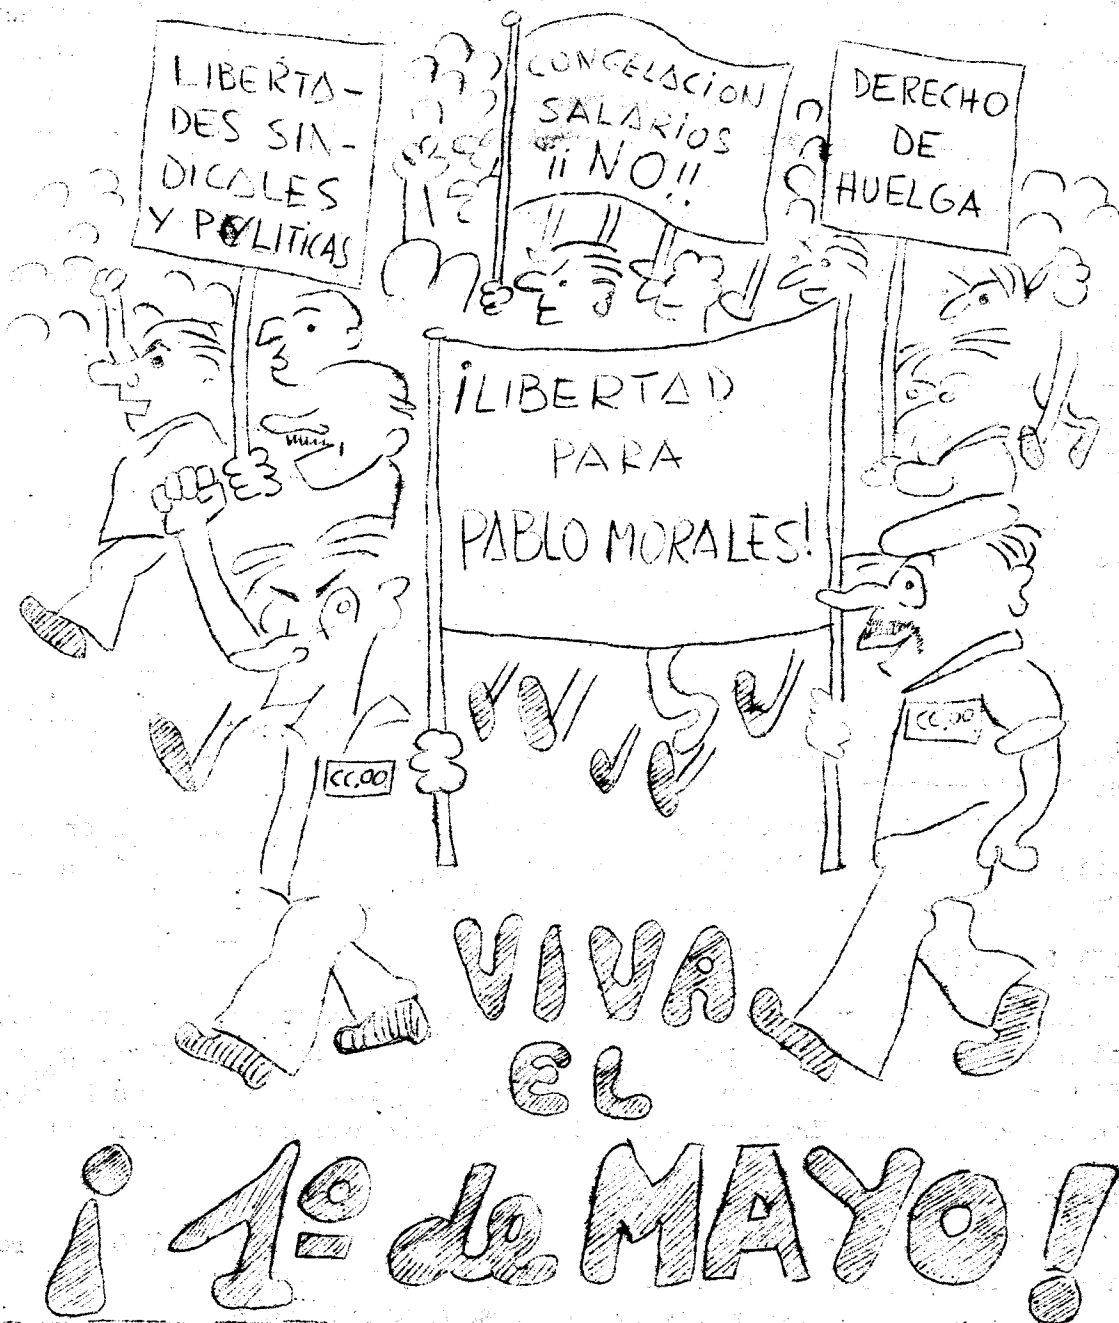 LIBERTA-
DES SIN-
DICALES
Y POLITICAS
CONGELACION
SALARIOS
¡¡NO!!
DERECHO
DE
HUELGA
¡LIBERTAD
PARA
PABLO MORALES!
CC.OO
CC.OO
VIVA
EL
¡1º de MAYO!